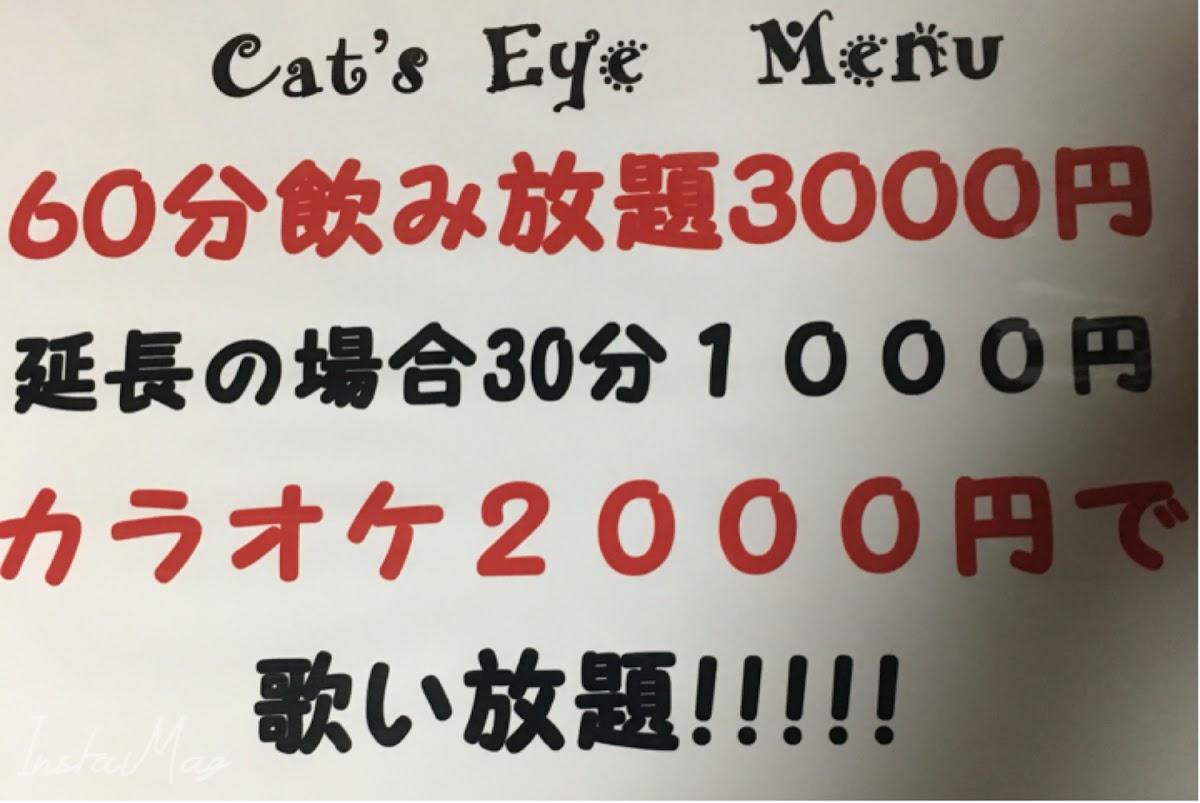 Cat's Eye Menu
60分飲み放題3000円
延長の場合30分１０００円
カラオケ２０００円で
歌い放題!!!!!
InstaMag